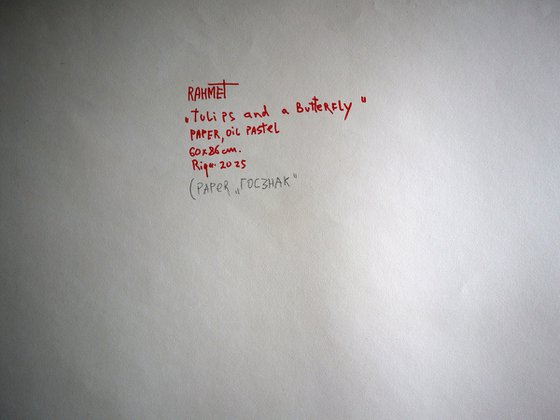 RAHMET
„Tulips and a Butterfly"
PAPER, OIL PASTEL
60x86 cm.
Riga. 2025
(PAPER „ГОСЗНАК"